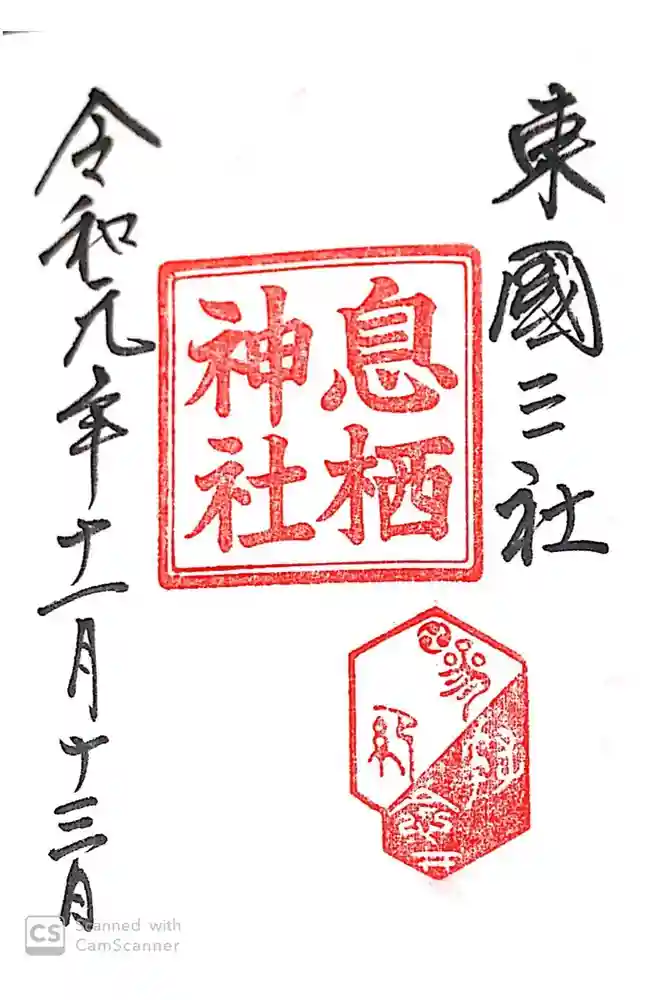 東國三社
息栖
神社
令和元年十一月十三日
CS Scanned with
CamScanner